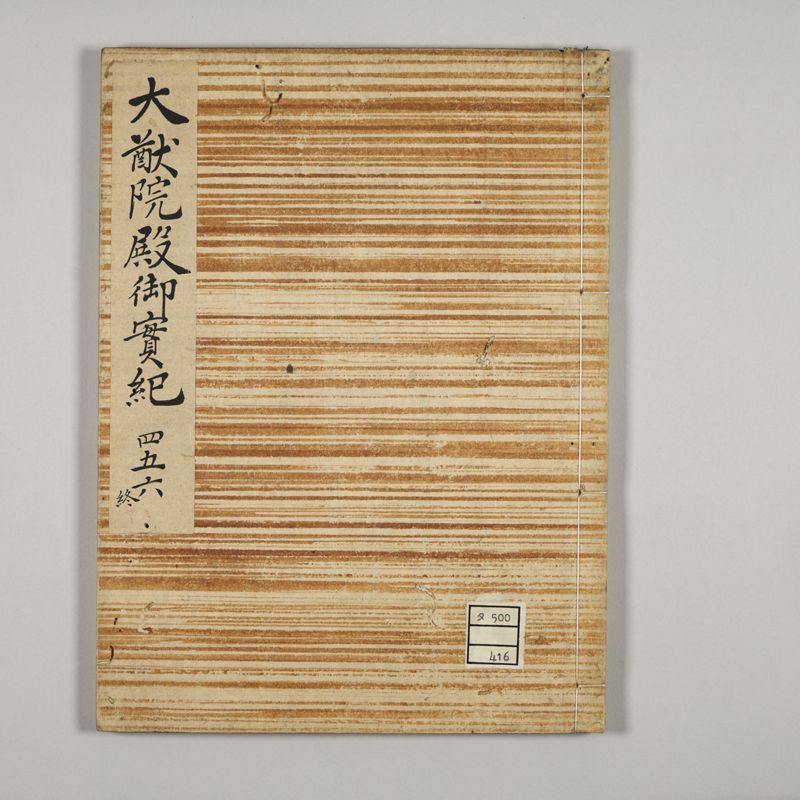 大猷院殿御實紀 四五六
終
タ 500
416